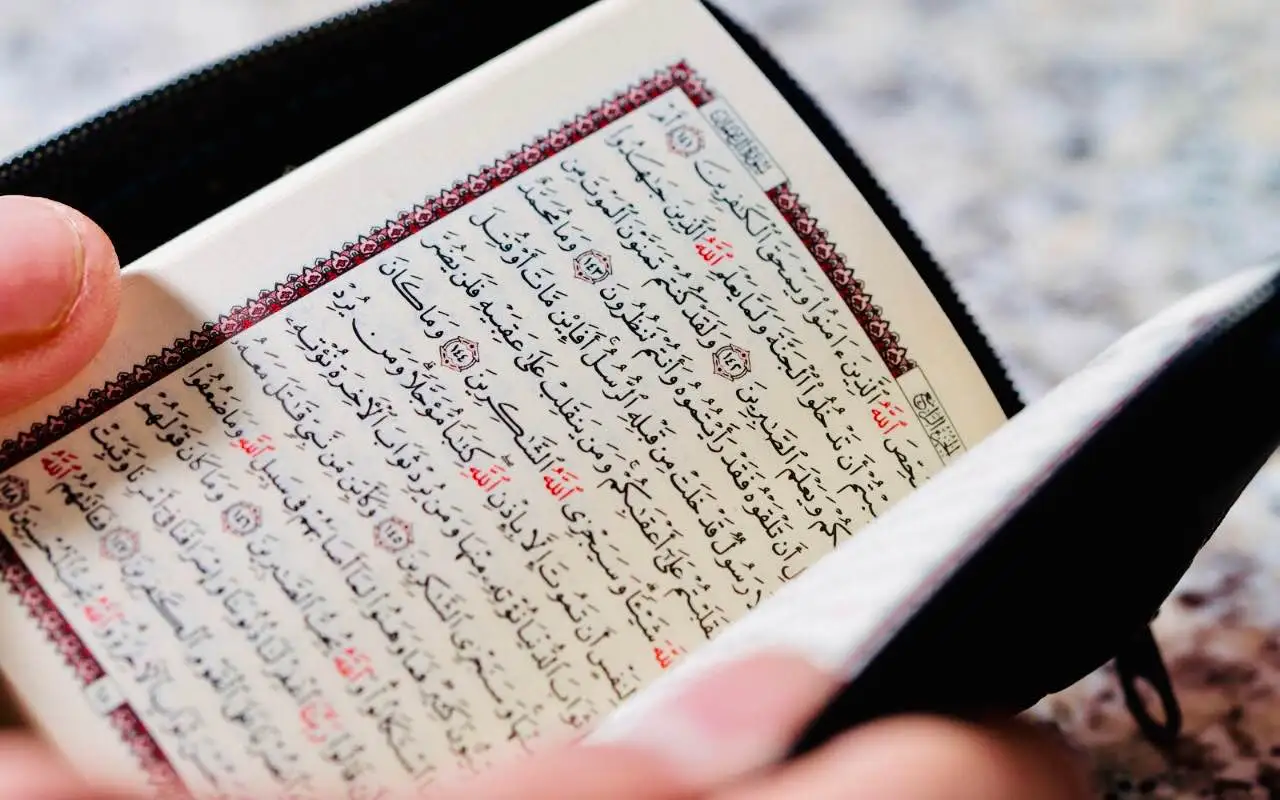 الجزء الرابع سورة آل عمران
ٱللَّهُ ٱلَّذِينَ ءَامَنُوا۟ وَيَمْحَقَ ٱلْكَـٰفِرِينَ ١٤١ أَمْ
أَن تَدْخُلُوا۟ ٱلْجَنَّةَ وَلَمَّا يَعْلَمِ ٱللَّهُ ٱلَّذِينَ جَـٰهَدُوا۟
وَيَعْلَمَ ٱلصَّـٰبِرِينَ ١٤٢ وَلَقَدْ كُنتُمْ تَمَنَّوْنَ ٱلْمَوْتَ مِن
أَن تَلْقَوْهُ فَقَدْ رَأَيْتُمُوهُ وَأَنتُمْ تَنظُرُونَ ١٤٣ وَمَا مُحَمَّدٌ
رَسُولٌ قَدْ خَلَتْ مِن قَبْلِهِ ٱلرُّسُلُ ۚ أَفَإِي۟ن مَّاتَ أَوْ قُتِلَ
عَلَىٰٓ أَعْقَـٰبِكُمْ ۚ وَمَن يَنقَلِبْ عَلَىٰ عَقِبَيْهِ فَلَن يَضُرَّ
شَيْـًٔا ۗ وَسَيَجْزِى ٱللَّهُ ٱلشَّـٰكِرِينَ ١٤٤ وَمَا كَانَ
لِنَفْسٍ أَن تَمُوتَ إِلَّا بِإِذْنِ ٱللَّهِ كِتَـٰبًا مُّؤَجَّلًا ۗ وَمَن يُرِدْ
ثَوَابَ ٱلدُّنْيَا نُؤْتِهِۦ مِنْهَا وَمَن يُرِدْ ثَوَابَ ٱلْـَٔاخِرَةِ نُؤْتِهِۦ
مِنْهَا ۚ وَسَنَجْزِى ٱلشَّـٰكِرِينَ ١٤٥ وَكَأَيِّن مِّن نَّبِىٍّ قَـٰتَلَ مَعَهُۥ
كَثِيرٌ فَمَا وَهَنُوا۟ لِمَآ أَصَابَهُمْ فِى سَبِيلِ ٱللَّهِ وَمَا ضَعُفُوا۟
ٱسْتَكَانُوا۟ ۗ وَٱللَّهُ يُحِبُّ ٱلصَّـٰبِرِينَ ١٤٦ وَمَا كَانَ قَوْلَهُمْ
قَالُوا۟ رَبَّنَا ٱغْفِرْ لَنَا ذُنُوبَنَا وَإِسْرَافَنَا فِىٓ أَمْرِنَا وَثَبِّتْ
وَٱنصُرْنَا عَلَى ٱلْقَوْمِ ٱلْكَـٰفِرِينَ ١٤٧ فَـَٔاتَىٰهُمُ ٱللَّهُ
وَحُسْنَ ثَوَابِ ٱلْـَٔاخِرَةِ ۗ وَٱللَّهُ يُحِبُّ ٱلْمُحْسِنِينَ ١٤٨